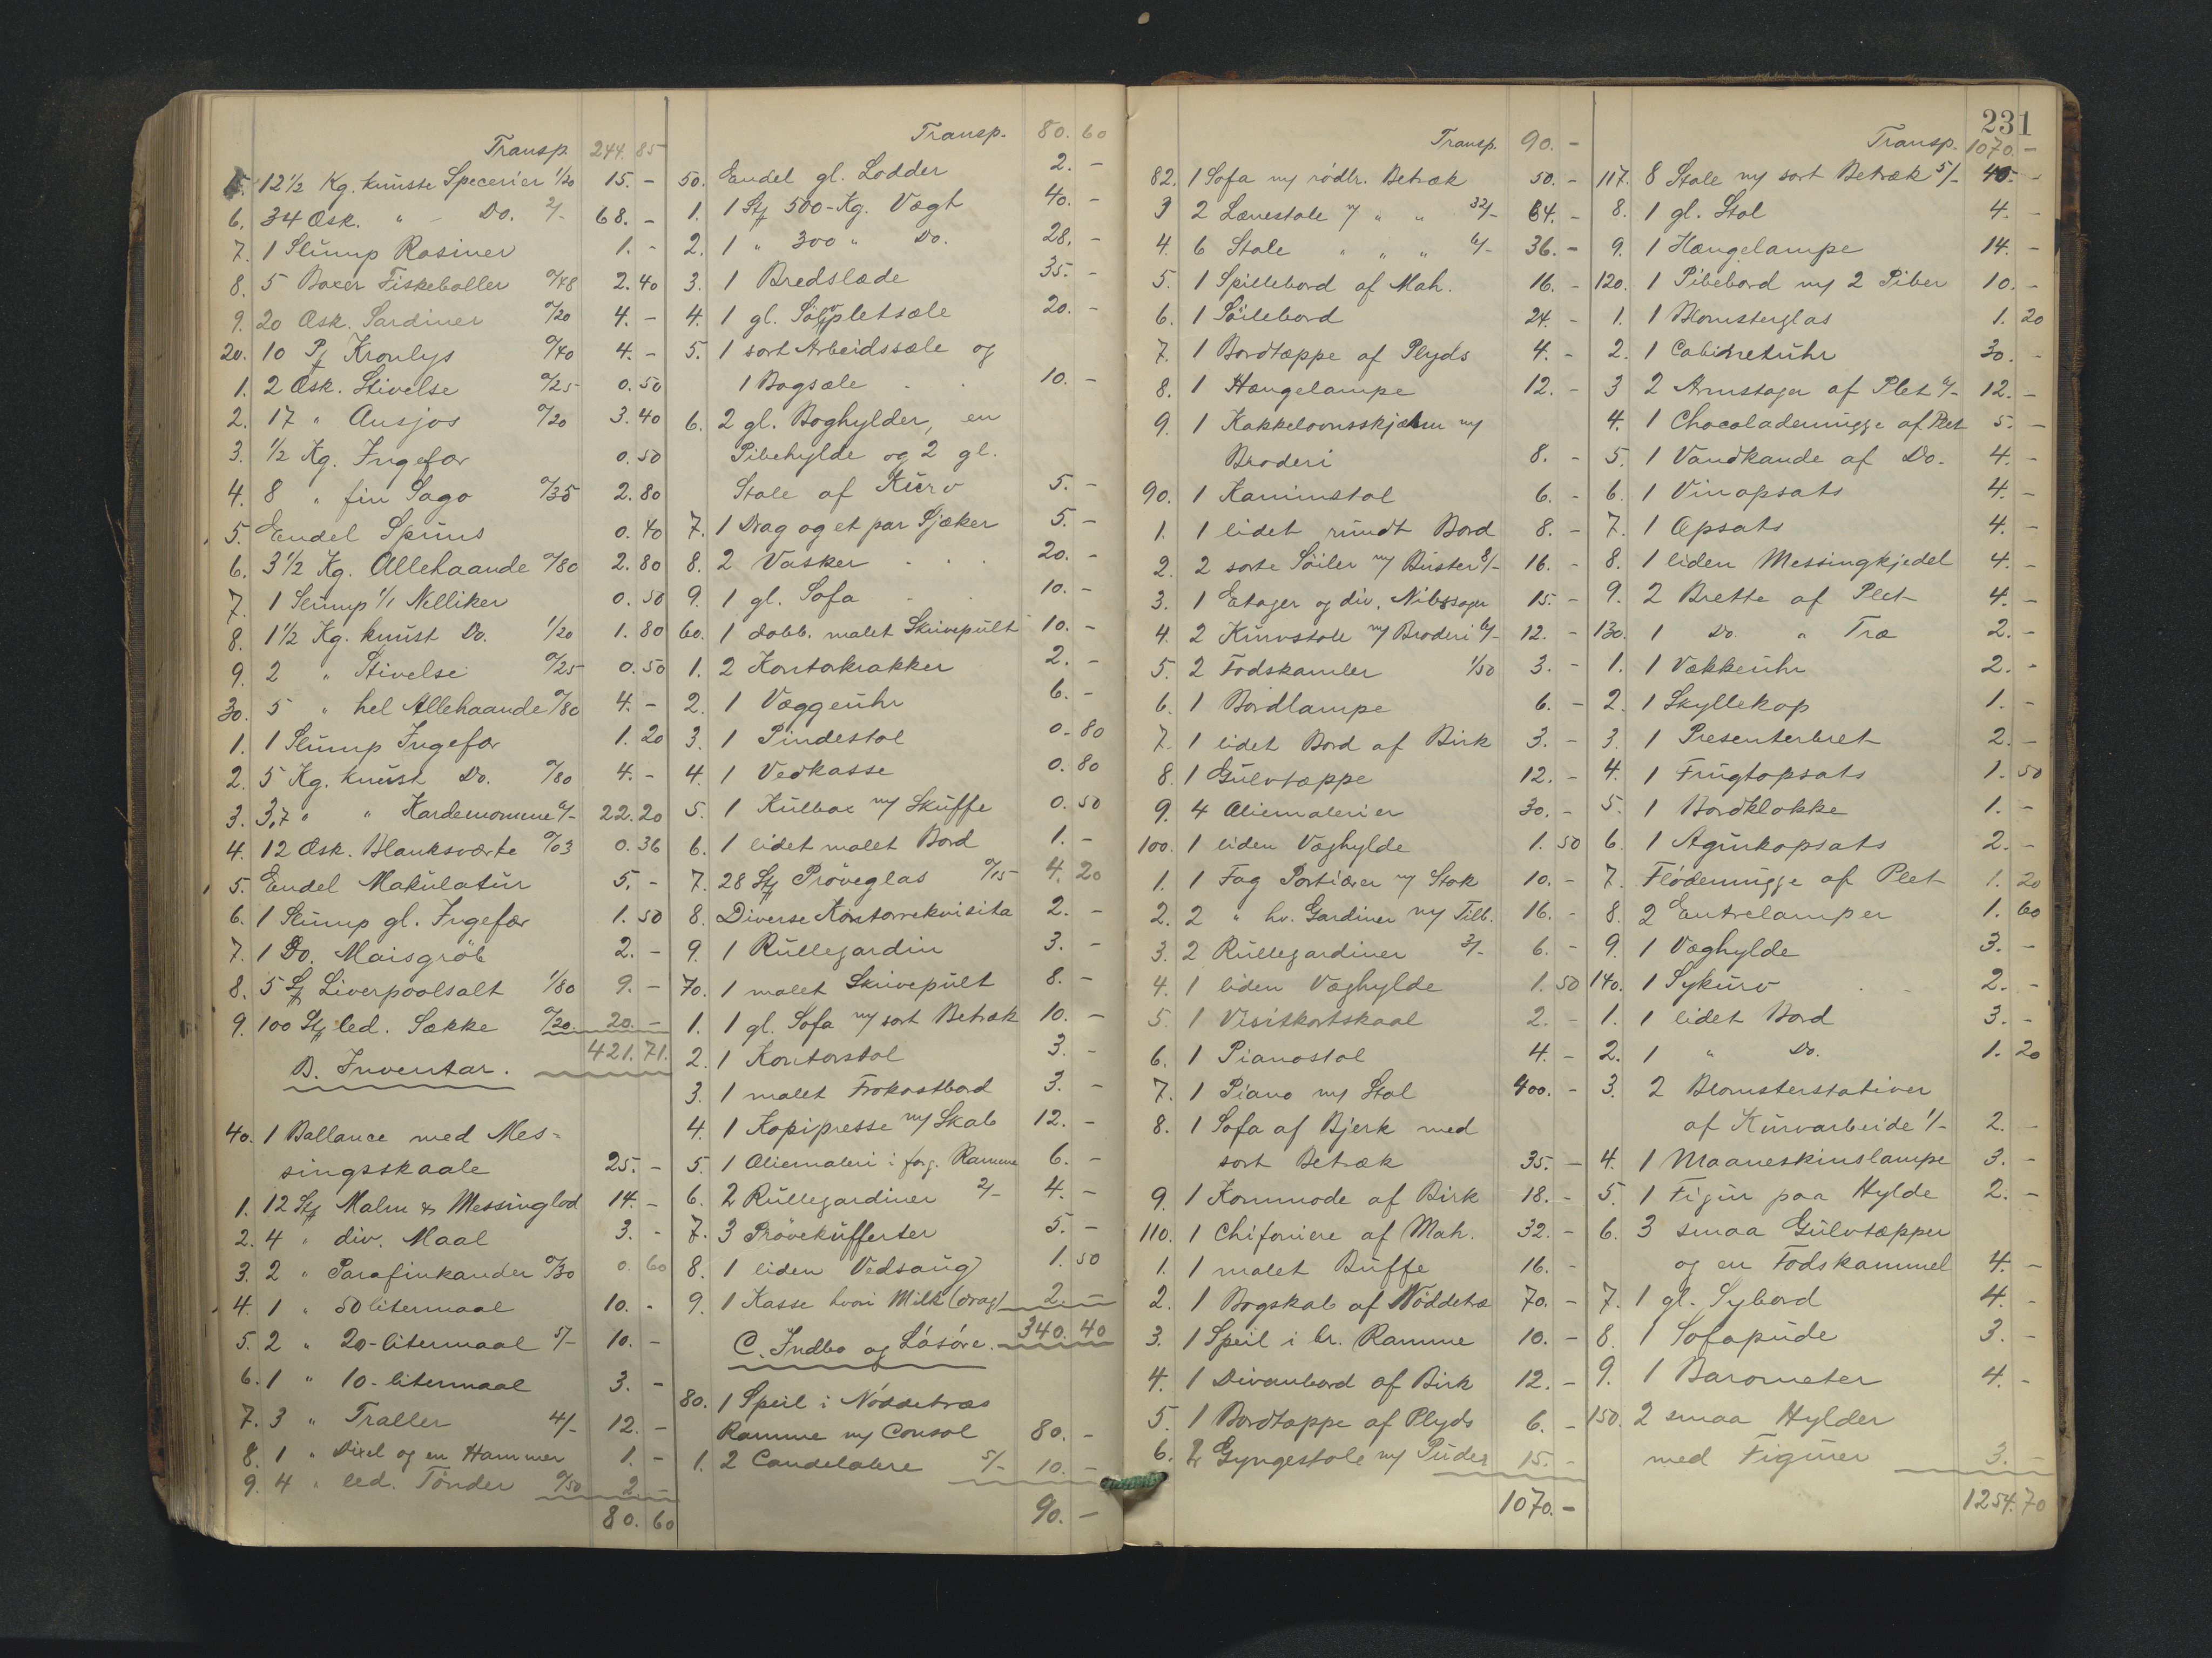 Transp. 244. 85
15. 12 1/2 Kg. knuste Specerier 1/20 15. -
6. 34 Æsk. " - Do. 2/- 68. -
7. 1 Slump Rosiner 1. -
8. 5 Boxer Fiskeboller 0/48 2. 40
9. 20 Æsk. Sardiner 0/20 4. -
20. 10 Pf Kronlys 0/40 4. -
1. 2 Æsk. Stivelse 0/25 0. 50
2. 17 " Ansjos 0/20 3. 40
3. 1/2 Kg. Ingefær 0. 50
4. 8 " fin Sago 0/35 2. 80
5. Endel Spuns 0. 40
6. 3 1/2 Kg. Allehaande 0/80 2. 80
7. 1 Slump 1/1 Nelliker 0. 50
8. 1 1/2 Kg. knust Do. 1/20 1. 80
9. 2 " Stivelse 0/25 0. 50
30. 5 " hel Allehaande 0/80 4. -
1. 1 Slump Ingefær 1. 20
2. 5 Kg. knust Do. 0/80 4. -
3. 3,7 " " Kardemomme 6/- 22. 20
4. 12 Æsk. Blanksværte 0/03 0. 36
5. Endel Makulatur 5. -
6. 1 Slump gl. Ingefær 1. 50
7. 1 Do. Maisgröb 2. -
8. 5 Sf Liverpoolsalt 1/80 9. -
9. 100 Stf led. Sække 0/20 20. -
421. 71.
B. Inventar.
40. 1 Ballance med Mes=
singsskaale 25. -
1. 12 Stf Malm & Messinglod 14. -
2. 4 " div. Maal 3. -
3. 2 " Parafinkander 0/30 0. 60
4. 1 " 50 litermaal 10. -
5. 2 " 20-litermaal 5/- 10. -
6. 1 " 10-litermaal 3. -
7. 3 " Traller 4/- 12. -
8. 1 " Dixel og en Hammer 1. -
9. 4 " led. Tönder 0/50 2. -
80. 60
Transp. 80. 60
50. Endel gl. Lodder 2. -
1. 1 Stf 500-Kg. Vægt 40. -
2. 1 " 300 " Do. 28. -
3. 1 Bredslæde 35. -
4. 1 gl. Sölvpletsæle 20. -
5. 1 sort Arbeidssæle og
1 Bogsæle 10. -
6. 2 gl. Boghylder, en
Pibehylde og 2 gl.
Stole af Kurv 5. -
7. 1 Drag og et par Sjæker 5. -
8. 2 Vasker 20. -
9. 1 gl. Sofa 10. -
60. 1 dobb. malet Skrivepult 10. -
1. 2 Kontorkrakker 2. -
2. 1 Væggeuhr 6. -
3. 1 Pindestol 0. 80
4. 1 Vedkasse 0. 80
5. 1 Kulbox m/ Skuffe 0. 50
6. 1 lidet malet Bord 1. -
7. 28 Stf Pröveglas 0/15 4. 20
8. Diverse Kontorrekvisita 2. -
9. 1 Rullegardin 3. -
70. 1 malet Skrivepult 8. -
1. 1 gl. Sofa m/ sort Betræk 10. -
2. 1 Kontorstol 3. -
3. 1 malet Frokostbord 3. -
4. 1 Kopipresse m/ Skab 12. -
5. 1 Oliemaleri i forg. Ramme 6. -
6. 2 Rullegardiner 2/- 4. -
7. 3 Prövekufferter 5. -
8. 1 liden Vedsaug 1. 50
9. 1 Kasse hvori Milk (drag) 2. -
340. 40
C. Indbo og Lösöre.
80. 1 Speil i Nöddetræs
Ramme m/ Consol 80. -
1. 2 Candelabre 5/- 10. -
90. -
Transp. 90. -
82. 1 Sofa m/ rödbr. Betræk 50. -
3 2 Lænestole m/ " " 32/- 64. -
4. 6 Stole " " " 6/- 36. -
5. 1 Spillebord af Mah. 16. -
6. 1 Söilebord 24. -
7. 1 Bordtæppe af Plyds 4. -
8. 1 Hængelampe 12. -
9. 1 Kakkelovnsskjærm m/
Broderi 8. -
90. 1 Kaminstol 6. -
1. 1 lidet rundt Bord 8. -
2. 2 sorte Söiler m/ Buster 8/- 16. -
3. 1 Etager og div. Nibssager 15. -
4. 2 Kurvstole m/ Broderi 6/- 12. -
5. 2 Fodskamler 1/50 3. -
6. 1 Bordlampe 6. -
7. 1 lidet Bord af Birk 3. -
8. 1 Gulvtæppe 12. -
9. 4 Oliemalerier 30. -
100. 1 liden Væghylde 1. 50
1. 1 Fag Portiærer m/ Stok 10. -
2. 2 " hv. Gardiner m/ Tilb. 16. -
3. 2 Rullegardiner 3/- 6. -
4. 1 liden Væghylde 1. 50
5. 1 Visitkortskaal 2. -
6. 1 Pianostol 4. -
7. 1 Piano m/ Stol 400. -
8. 1 Sofa af Bjerk med
sort Betræk 35. -
9. 1 Kommode af Birk 18. -
110. 1 Chifoniere af Mah. 32. -
1. 1 malet Buffe 16. -
2. 1 Bogskab af Nöddetræ 70. -
3. 1 Speil i br. Ramme 10. -
4. 1 Divanbord af Birk 12. -
5. 1 Bordtæppe af Plyds 6. -
6. 2 Gyngestole m/ Puder 15. -
1070. -
231
Transp. 1070. -
117. 8 Stole m/ sort Betræk 5/- 40. -
8. 1 gl. Stol 4. -
9. 1 Hængelampe 14. -
120. 1 Pibebord m/ 2 Piber 10. -
1. 1 Blomsterglas 1. 20
2. 1 Cabinetuhr 30. -
3 2 Armstager af Plet 6/- 12. -
4. 1 Chocolademugge af Plet 5. -
5. 1 Vandkande af Do. 4. -
6. 1 Vinopsats 4. -
7. 1 Opsats 4. -
8. 1 liden Messingkjedel 4. -
9. 2 Brette af Plet 4. -
130. 1 Do. " Træ 2. -
1. 1 Vækkeuhr 2. -
2. 1 Skyllekop 1. -
3. 1 Presenterbret 2. -
4. 1 Frugtopsats 1. 50
5. 1 Bordklokke 1. -
6. 1 Agurkopsats 2. -
7. Flödemugge af Plet 1. 20
8. 2 Entrelamper 1. 60
9. 1 Væghylde 3. -
140. 1 Sykurv 2. -
1. 1 lidet Bord 3. -
2. 1 " Do. 1. 20
3. 2 Blomsterstativer
af Kurvarbeide 1/- 2. -
4. 1 Maaneskinslampe 3. -
5. 1 Figur paa Hylde 2. -
6. 3 smaa Gulvtæpper
og en Fodskammel 4. -
7. 1 gl. Sybord 4. -
8. 1 Sofapude 3. -
9. 1 Barometer 4. -
150. 2 smaa Hylder
med Figurer 3. -
1254. 70